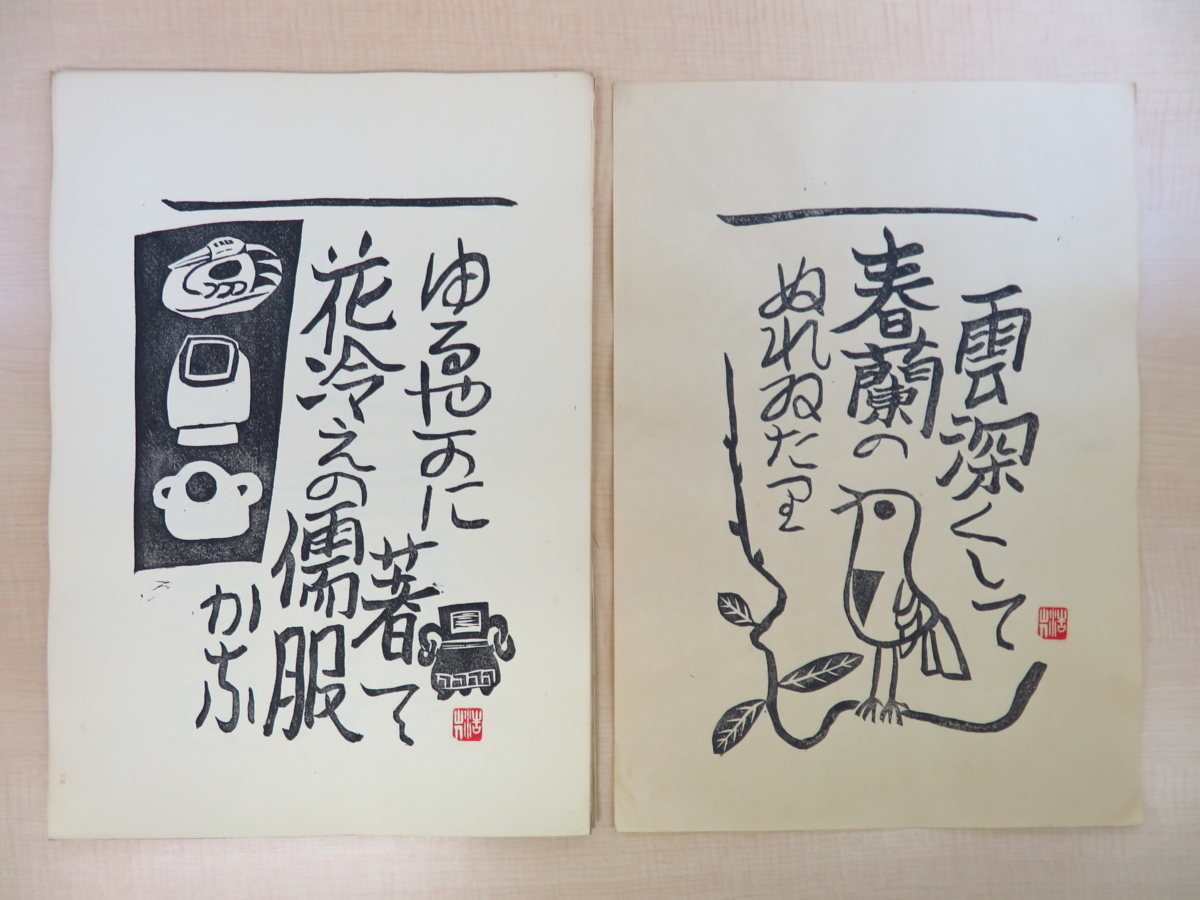 ゆるやかに
著て
花冷えの
儒服
かな
雲深くして
春蘭の
ぬれゐたり